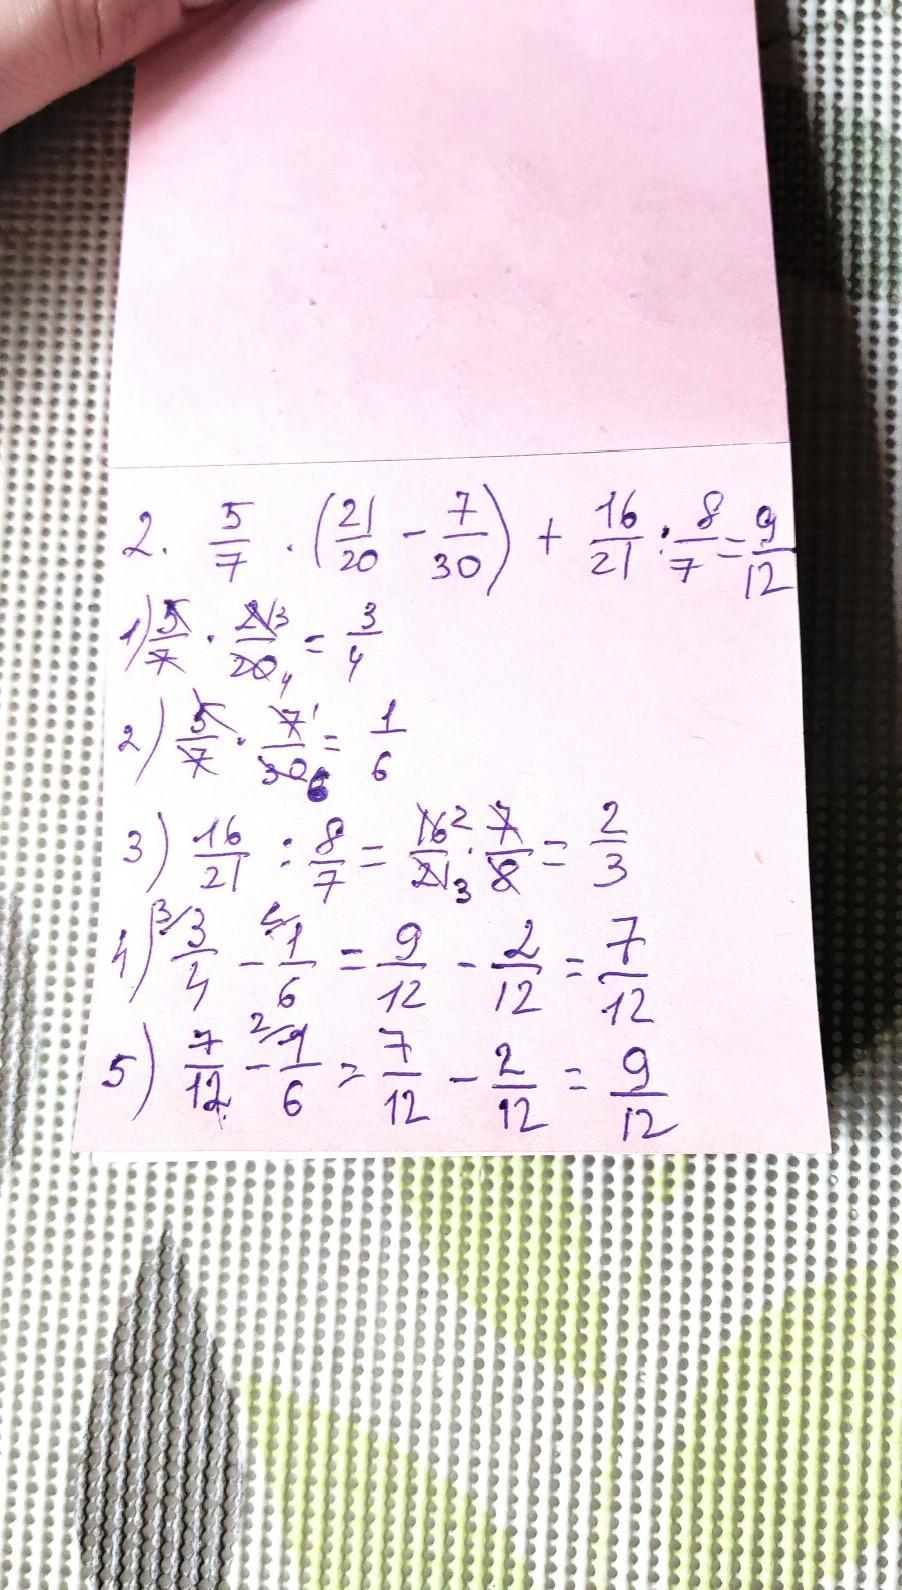 2. 5/7 · (21/20 - 7/30) + 16/21 : 8/7 = 9/12
1) 5/7 · 21 3/20 4 = 3/4
2) 5/7 · 7 1/30 6 = 1/6
3) 16/21 : 8/7 = 16 2/21 3 · 7/8 = 2/3
4) 3/ 3/4 - 1/6 = 9/12 - 2/12 = 7/12
5) 7/12 - 2/ 1/6 = 7/12 - 2/12 = 9/12